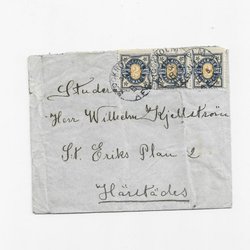 Student
Herr Wilhelm Kjellström
St. Eriks Plan 2
Härstädes